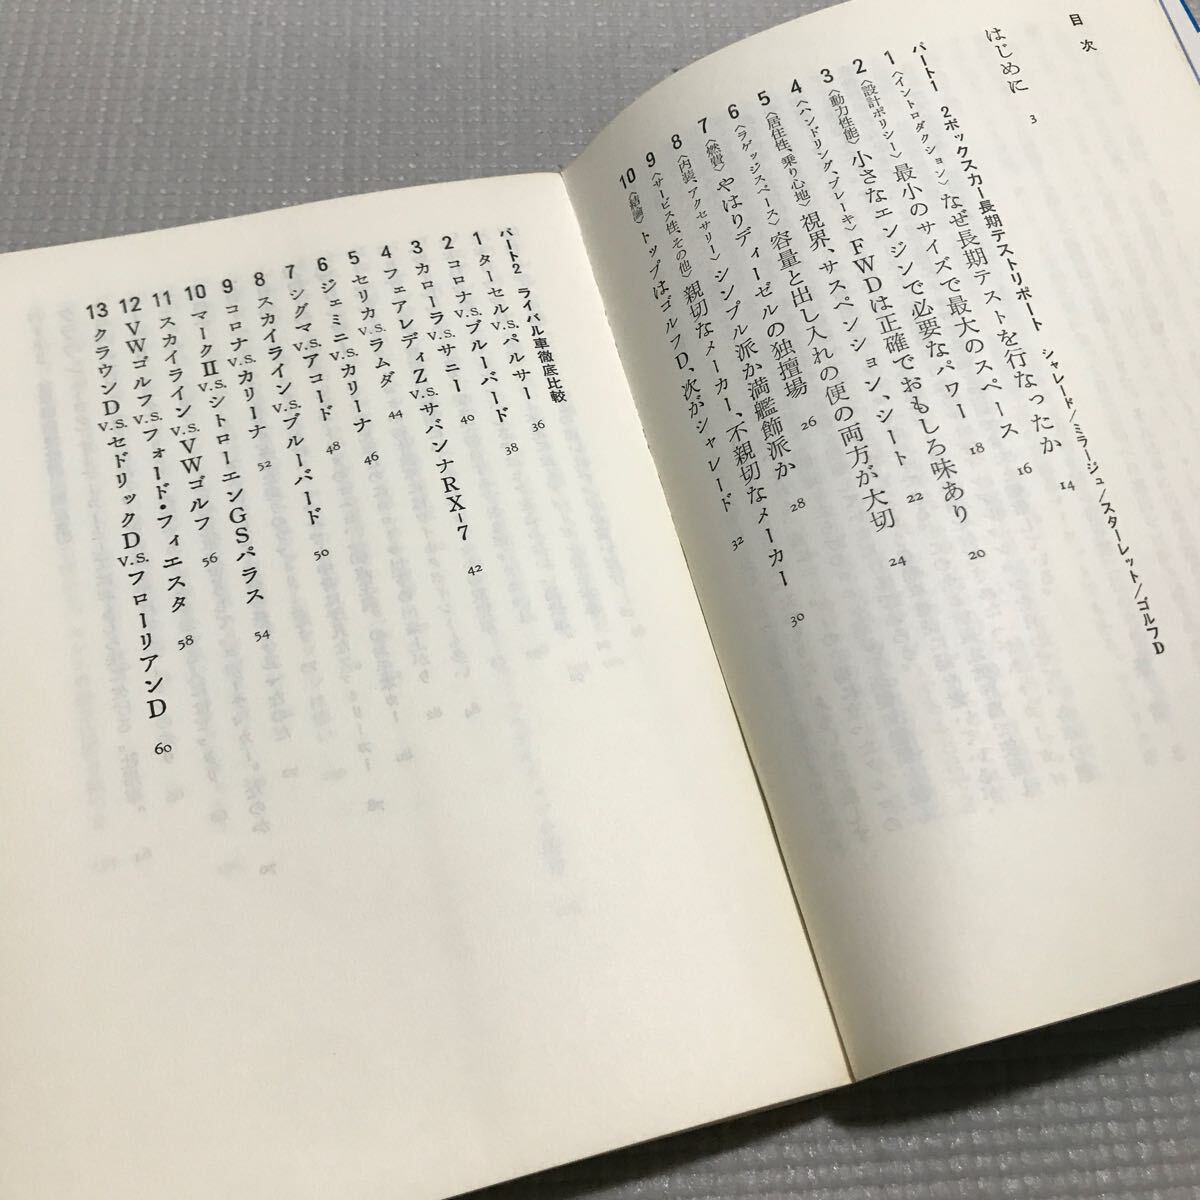 目次
はじめに 3
パート1 2ボックスカー長期テストリポート シャレード/ミラージュ/スターレット/ゴルフD
1 〈イントロダクション〉なぜ長期テストを行なったか 14
2 〈設計ポリシー〉最小のサイズで最大のスペース 16
3 〈動力性能〉小さなエンジンで必要なパワー 18
4 〈ハンドリング、ブレーキ〉FWDは正確でおもしろ味あり 20
5 〈居住性、乗り心地〉視界、サスペンション、シート 22
6 〈ラゲッジスペース〉容量と出し入れの便の両方が大切 24
7 〈燃費〉やはりディーゼルの独壇場 26
8 〈内装、アクセサリー〉シンプル派か満艦飾派か 28
9 〈サービス性、その他〉親切なメーカー、不親切なメーカー 30
10 〈結論〉トップはゴルフD、次がシャレード 32
パート2 ライバル車徹底比較
1 ターセルv.s.パルサー 36
2 コロナv.s.ブルーバード 38
3 カローラv.s.サニー 40
4 フェアレディZv.s.サバンナRX-7 42
5 セリカv.s.ラムダ 44
6 ジェミニv.s.カリーナ 46
7 シグマv.s.アコード 48
8 スカイラインv.s.ブルーバード 50
9 コロナv.s.カリーナ 52
10 マークⅡv.s.シトローエンGSパラス 54
11 スカイラインv.s.VWゴルフ 56
12 VWゴルフv.s.フォード・フィエスタ 58
13 クラウンDv.s.セドリックDv.s.フローリアンD 60